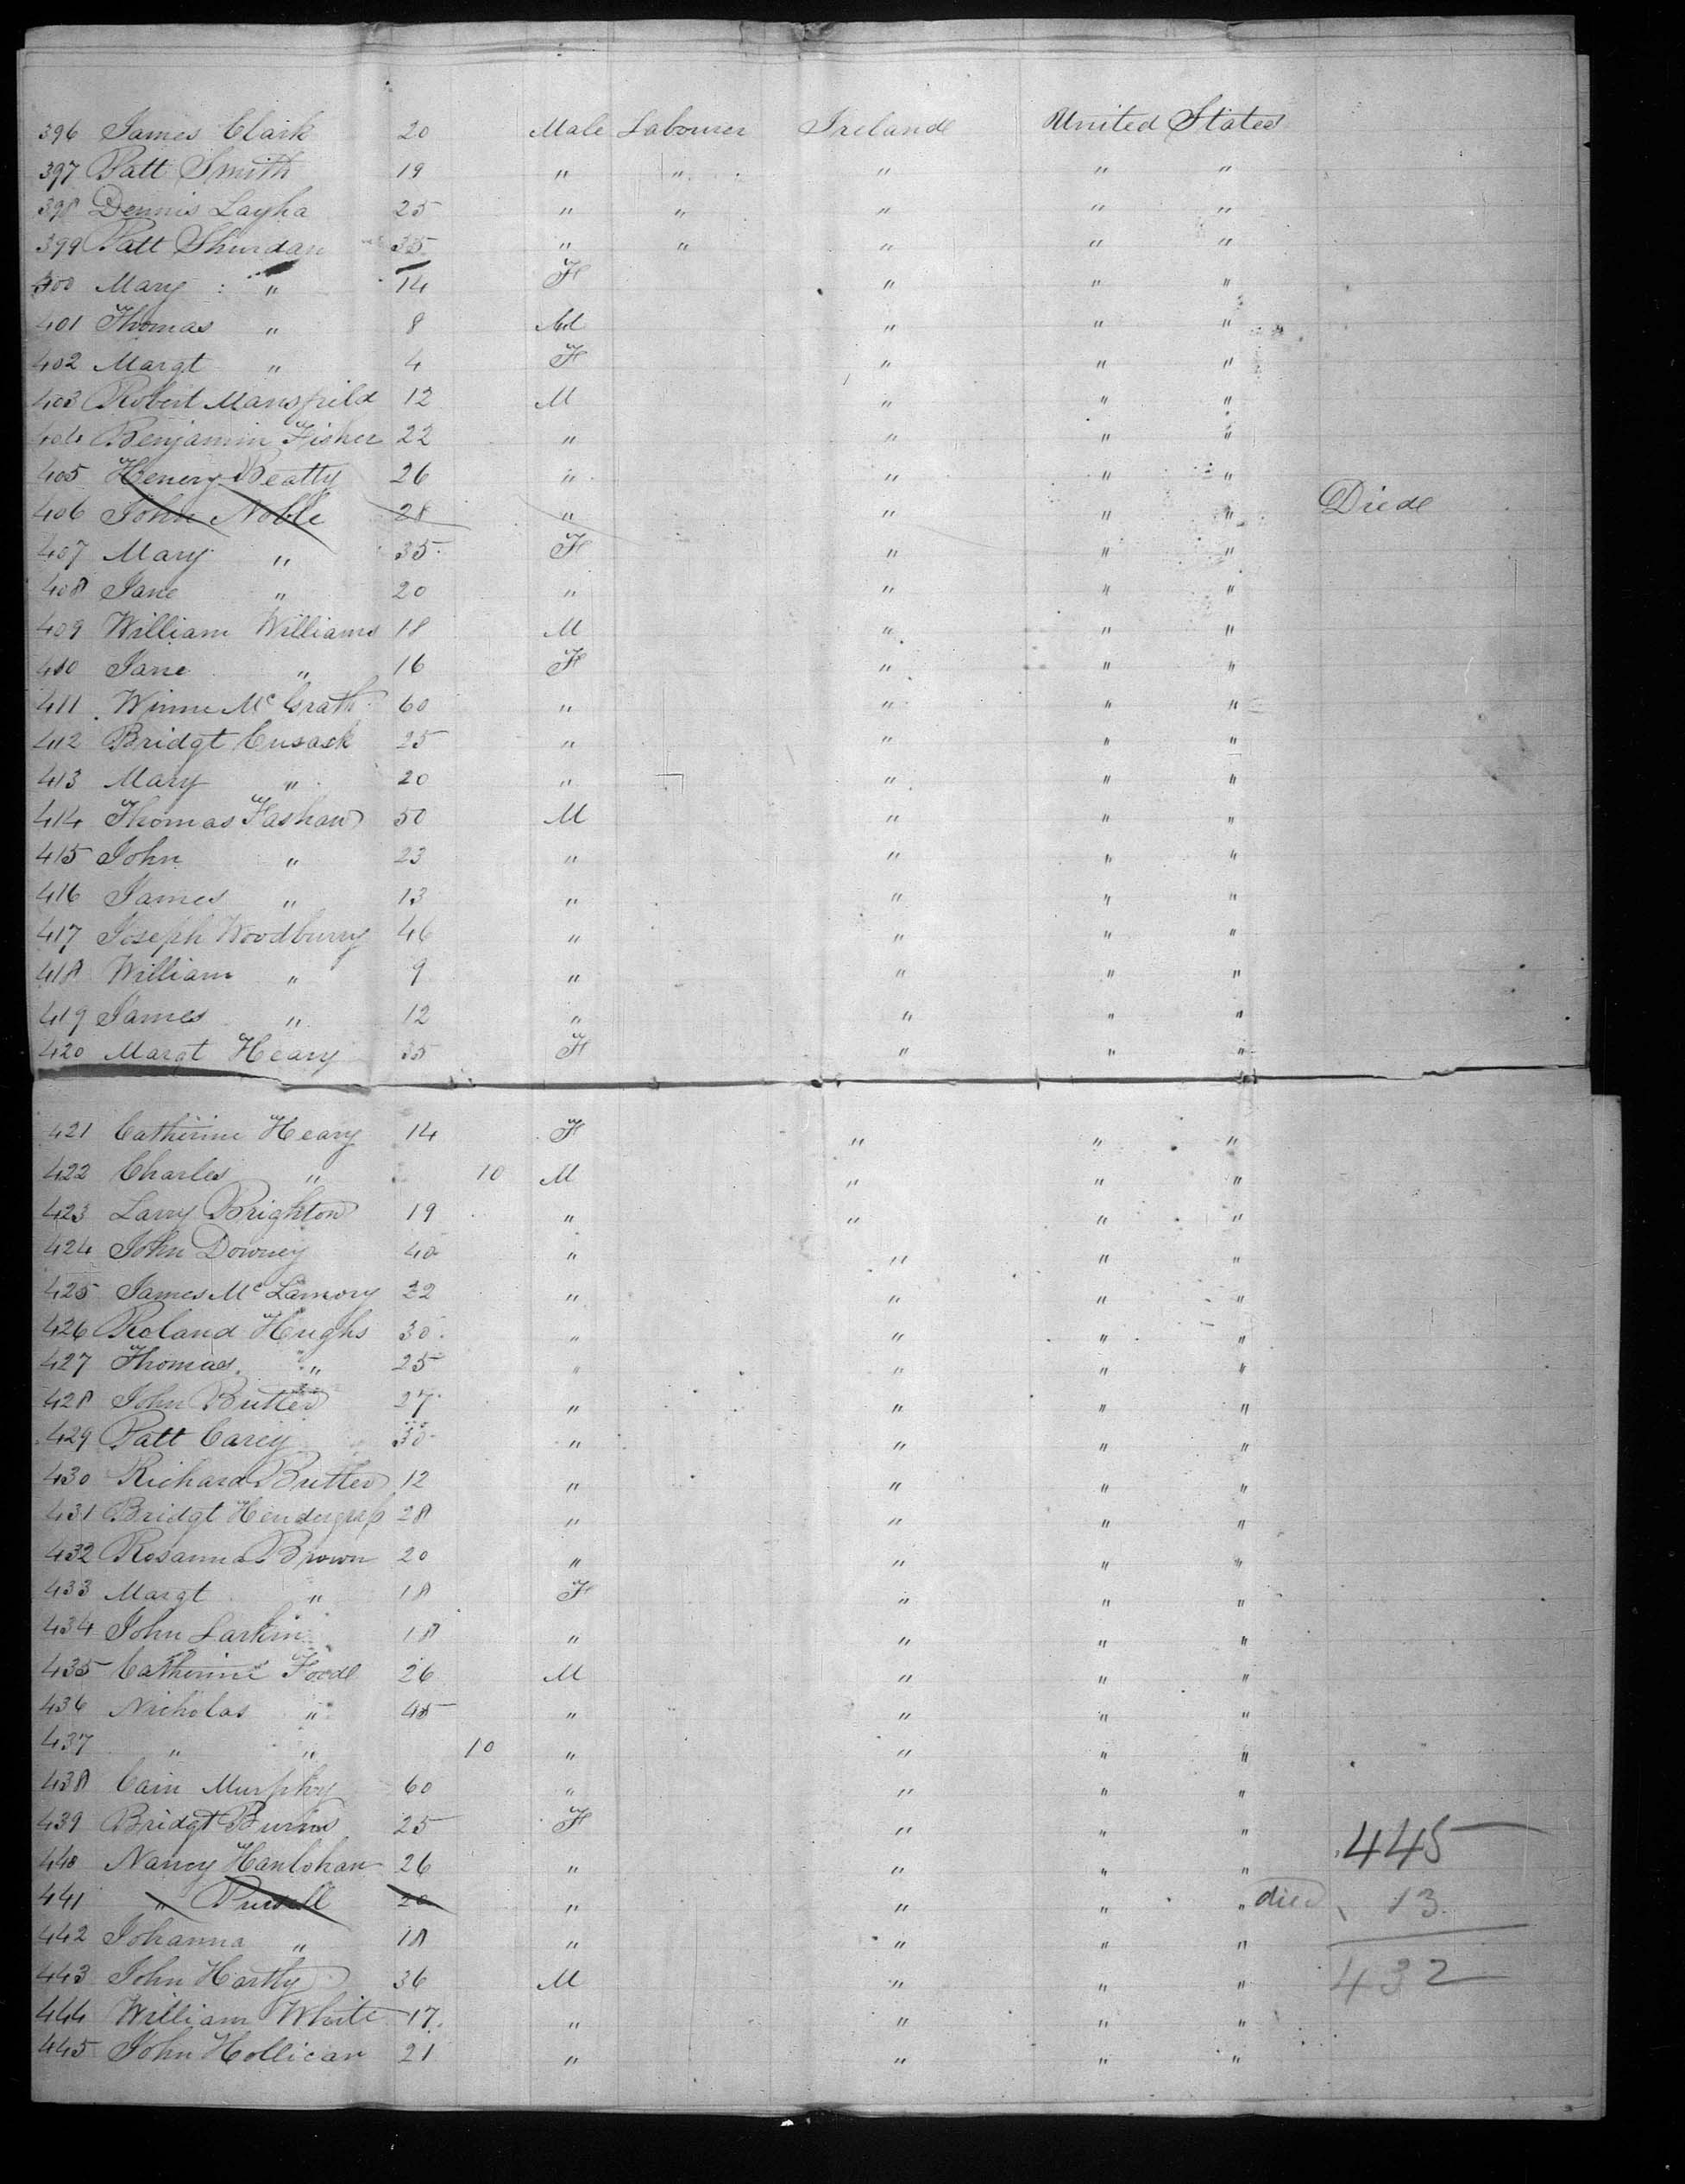 396 James Clark 20 Male Labourer Ireland United States
397 Patt Smith 19 " " " " "
398 Dennis Layha 25 " " " " "
399 Patt Shurdan 35 " " " " "
400 Mary " 14 F " " "
401 Thomas " 8 M " " "
402 Margt " 4 F " " "
403 Robert Mansfield 12 M " " "
404 Benjamin Fisher 22 " " " "
405 Henery Beatty 26 " " " "
406 John Noble 28 " " " " Died
407 Mary " 35 F " " "
408 Jane " 20 " " " "
409 William Williams 18 M " " "
410 Jane " 16 F " " "
411 Winne McGrath 60 " " " "
412 Bridgt Cusack 25 " " " "
413 Mary " 20 " " " "
414 Thomas Fashaw 50 M " " "
415 John " 23 " " " "
416 James " 13 " " " "
417 Joseph Woodburry 46 " " " "
418 William " 9 " " " "
419 James " 12 " " " "
420 Margt Heary 35 F " " "
421 Catherine Heary 14 F " " "
422 Charles " 10 M " " "
423 Larry Brighton 19 " " " "
424 John Downey 40 " " " "
425 James Mc Lamory 22 " " " "
426 Roland Hughs 30 " " " "
427 Thomas " 25 " " " "
428 John Butler 27 " " " "
429 Patt Carey 30 " " " "
430 Richard Butler 12 " " " "
431 Bridgt Hendergrass 28 " " " "
432 Rosanna Brown 20 " " " "
433 Margt " 18 F " " "
434 John Larkin 18 " " " "
435 Catherine Foode 26 M " " "
436 Nicholas " 45 " " " "
437 " " 10 " " " "
438 Cain Murphy 60 " " " "
439 Bridgt Burns 25 F " " "
440 Nancy Hanlohan 26 " " " " 445
441 " Pursell 20 " " " " died 13
442 Johanna " 18 " " " "
443 John Hartly 36 M " " " 432
444 William White 17 " " " "
445 John Hollican 21 " " " "